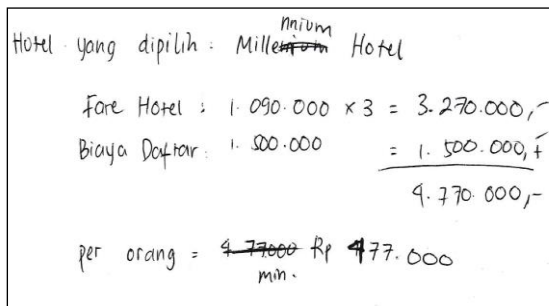 Hotel yang dipilih : Millennium Hotel
Fare Hotel : 1.090.000 x 3 = 3.270.000,-
Biaya Daftar : 1.500.000 = 1.500.000,-
+
4.770.000,-
per orang = 4.77.000 Rp 477.000
min.